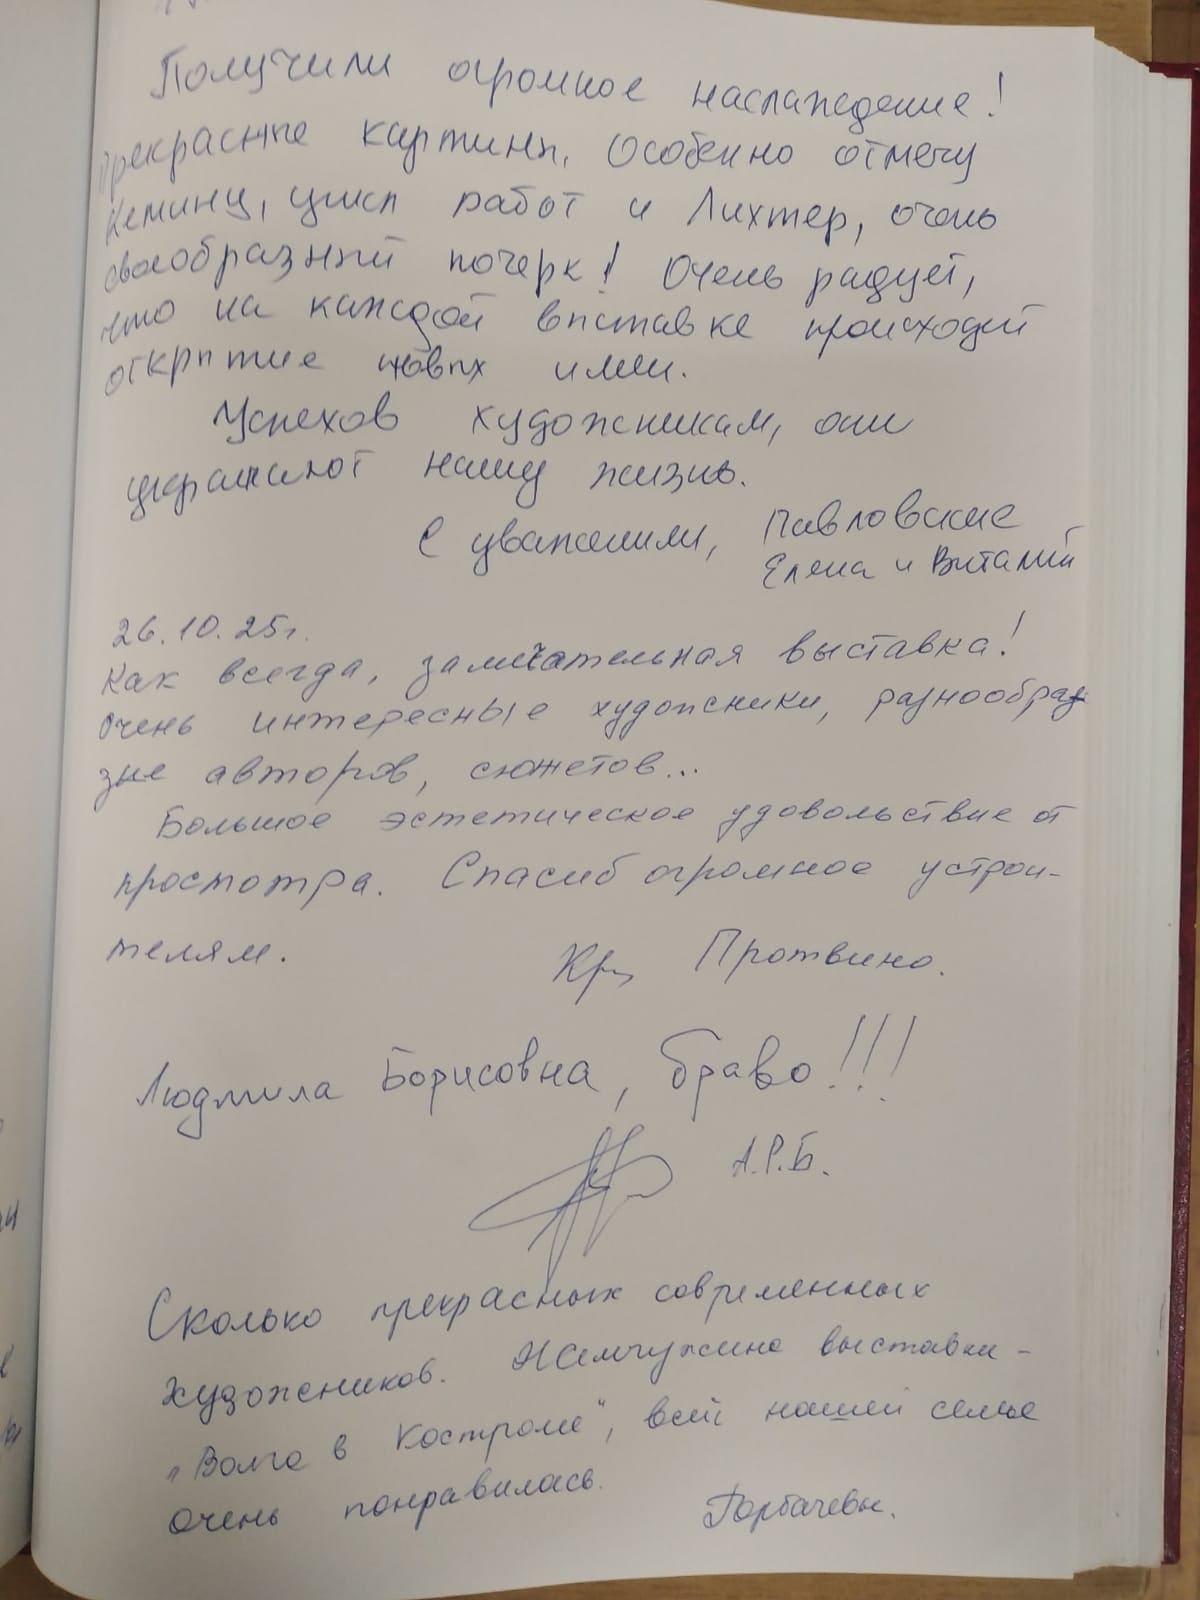 Получили огромное наслаждение!
Прекрасные картины, Особенно отмечу
цикл работ и Лихтер, очень
своеобразный почерк! Очень радует,
что на каждой выставке происходит
открытие новых имен.
Успехов художникам, они
украшают нашу жизнь.
С уважением, Павловские
Елена и Виталий
26.10.25г.
Как всегда, замечательная выставка!
Очень интересные художники, разнообраз
зие авторов, сюжетов...
Большое эстетическое удовольствие от
просмотра. Спасиб огромное устрои-
телям.
Протвино.
Людмила Борисовна, браво!!!
А.Р.Б.
Сколько прекрасных современных
художников. Жемчужина выставки -
"Волга в Костроме", всей нашей семье
очень понравилась.
Горбачевы.